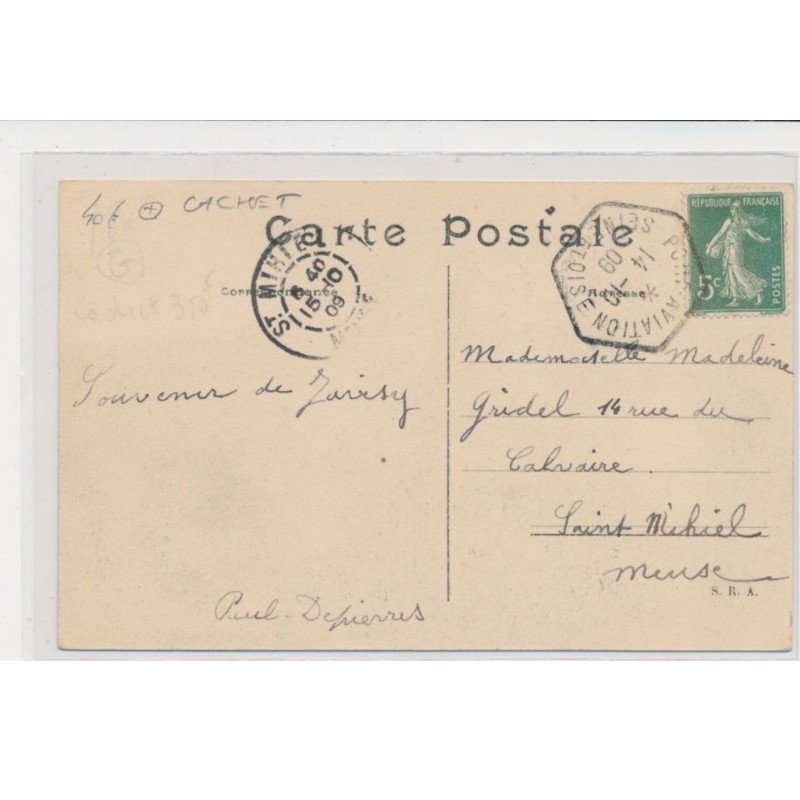 40€ + CACHET
Carte Postale
Correspondance
Adresse
ST MIHIEL
5 40
15-10
09
MEUSE
PORT-AVIATION
14-10
09
SEINE ET OISE
REPUBLIQUE FRANÇAISE
5c
POSTES
Souvenir de Juvisy
Paul Depierres
Mademoiselle Madeleine
Gridel 14 rue du
Calvaire
Saint Mihiel
Meuse
S. R. A.